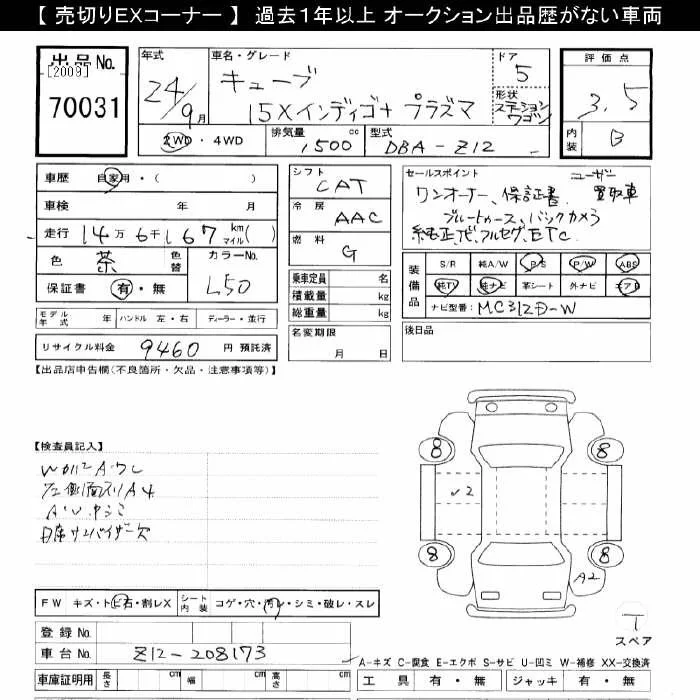 【 売切りEXコーナー 】 過去1年以上 オークション出品歴がない車両
出品No.
[2009]
70031
年式
24/9月
車名・グレード
キューブ
15Xインディゴ+プラズマ
ドア
5
形状
ステーションワゴン
評価点
3.5
内装
B
2WD ・ 4WD
排気量
1500 cc
型式
DBA-Z12
車歴 自家用・( )
車検 年 月
走行 14万6千167 km マイル( )
色 茶 色替
カラーNo.
L50
保証書 有・無
モデル年式 年 ハンドル 左・右 ディーラー・並行
リサイクル料金 9460 円 預託済
シフト
CAT
冷房
AAC
燃料
G
乗車定員 名
積載量 kg
総重量 kg
名変期限
月 日
セールスポイント
ユーザー買取車
ワンオーナー、保証書
ブルートゥース、バックカメラ
純正ナビ、フルセグ、ETC
装備品
S/R 純A/W P/S P/W ABS
純TV 純ナビ 革シート 外ナビ エアB
ナビ型番: MC312D-W
後日品
【出品店申告欄(不良箇所・欠品・注意事項等)】
【検査員記入】
A・U
サンバイザー欠
8 8
2
8 8
A2
T
スペア
FW キズ・トビ石・割レX
シート内装 コゲ・穴・汚レ・シミ・破レ・スレ
登録No.
車台No. Z12-208173
A-キズ C-腐食 E-エクボ S-サビ U-凹ミ W-補修 XX-交換済
車庫証明用 長さ cm 幅 cm 高さ cm
工具 有・無 ジャッキ 有・無